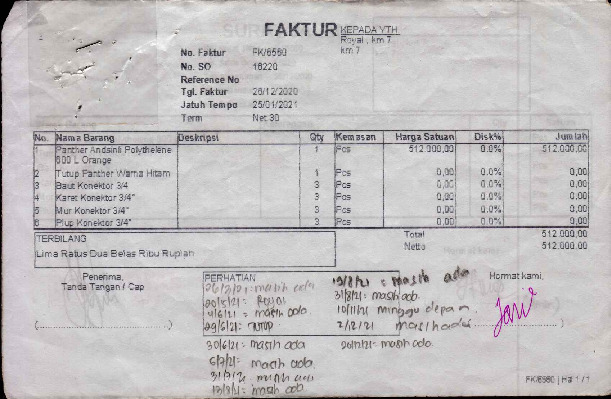 FAKTUR
KEPADA YTH
Royal , km 7
km 7
No. Faktur FK/6560
No. SO 16220
Reference No
Tgl. Faktur 26/12/2020
Jatuh Tempo 25/01/2021
Term Net 30
No. Nama Barang Deskripsi Qty Kemasan Harga Satuan Disk% Jumlah
1 Panther Andsinli Polythelene 1 Pcs 512.000,00 0.0% 512.000,00
600 L Orange
2 Tutup Panther Warna Hitam 1 Pcs 0,00 0.0% 0,00
3 Baut Konektor 3/4 3 Pcs 0,00 0.0% 0,00
4 Karet Konektor 3/4" 3 Pcs 0,00 0.0% 0,00
5 Mur Konektor 3/4" 3 Pcs 0,00 0.0% 0,00
6 Plup Konektor 3/4" 3 Pcs 0,00 0.0% 0,00
Total 512.000,00
Netto 512.000,00
TERBILANG
Lima Ratus Dua Belas Ribu Rupiah
Penerima,
Tanda Tangan / Cap
PERHATIAN
Hormat kami,
masih ada
19/8/21 = masih ada
31/8/21: masih ada
10/11/21 minggu depan
2/12/21 masih ada
masih ada
29/6/21: TUTUP
30/6/21: masih ada
masih ada
6/7/21: masih ada
masih ada
masih ada
FK/6560 | Hal 1 / 1